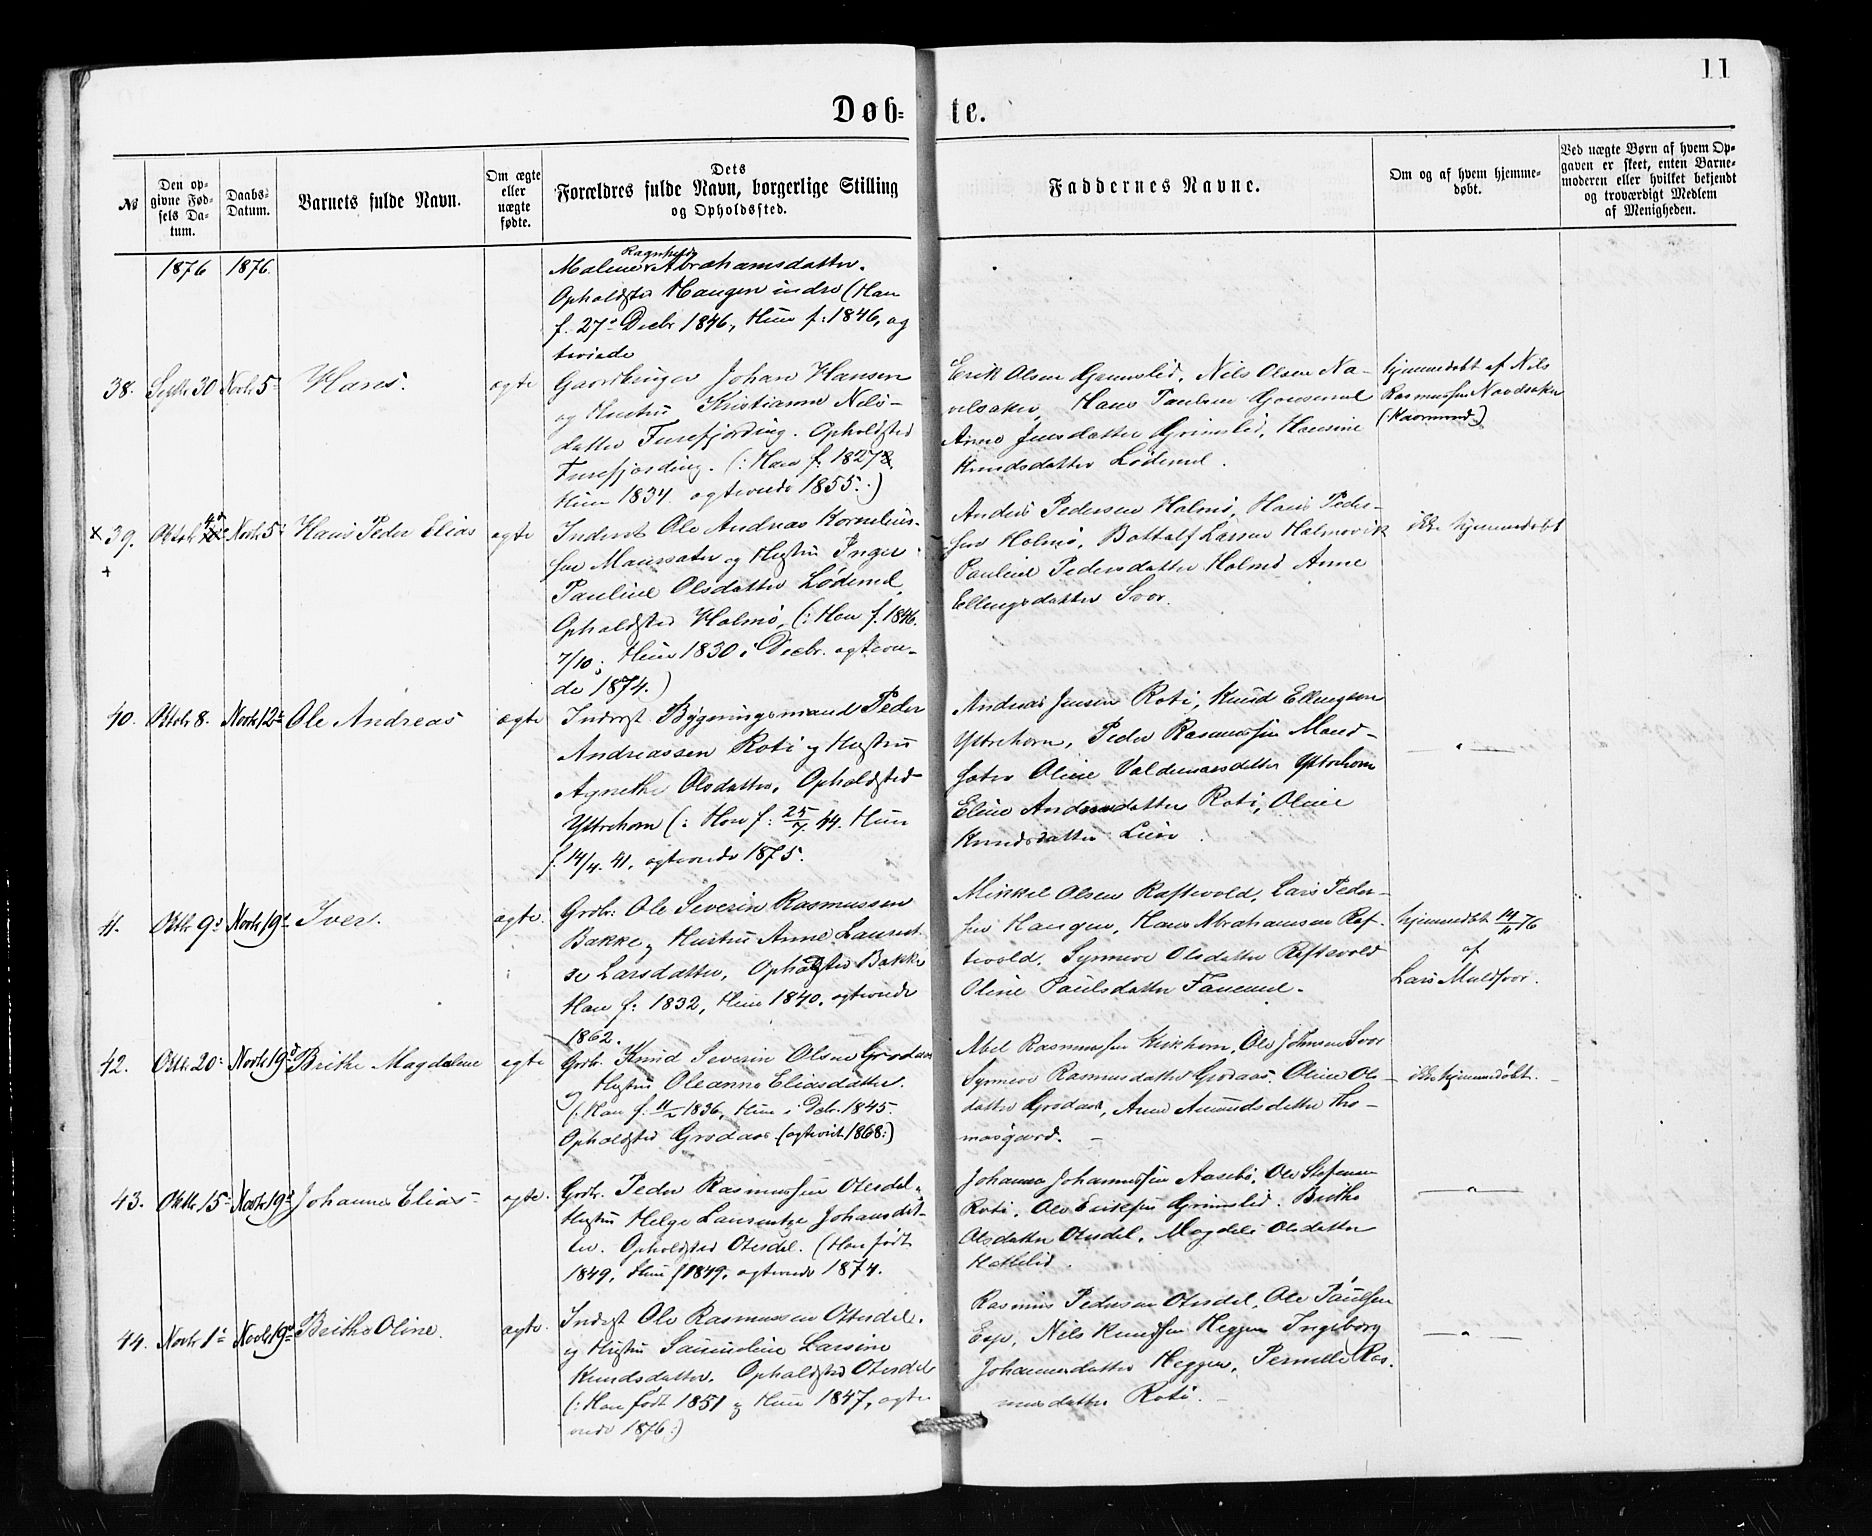 11
Døb- te.
№
Den op-
givne Fød-
sels Da-
tum.
Daabs-
Datum.
Barnets fulde Navn.
Om ægte
eller
uægte
fødte.
Dets
Forældres fulde Navn, borgerlige Stilling
og Opholdssted.
Faddernes Navne.
Om og af hvem hjemme-
døbt.
Ved uægte Børn af hvem Op-
gaven er skeet, enten Barne-
moderen eller hvilket bekjendt
og troværdigt Medlem
af Menigheden.
1876 1876.
Ragnhild
Malene Abrahamsdatter.
Opholdsted Haugen indre (Han
f. 27de Decbr 1846, Hun f: 1846, og
38. Septr 30 Novbr 5te Hans. ægte
Gaardbruger Johan Hansen
og Hustru Kristianne Nils-
datter Furefjording. Opholdsted
Furefjording. (: Han f. 1827
Hun 1834. ægteviede 1855.:)
Erik Olsen Grimslid, Nils Olsen Na-
velsaker, Hans Paulsen
Anne Jensdatter Grimslid, Hansine
Knudsdatter Lødemel.
hjemmedøbt af Nils
Rasmussen Navelsaker
× 39. Oktob. Novbr 5te Hans Peder Elias ægte
+
Inderst Ole Andreas Kornelius-
sen Maurseter og Hustru Inger
Pauline Olsdatter Lødemel,
Opholdsted Holmø, (: Han f. 1846.
7/10; Hun 1830 i Decbr. ægtevie-
de 1874.)
Anders Pedersen Holmø, Hans Peder-
sen Holmø, Bottolf Larsen Holmøvik
Pauline Pedersdatter Holmø Anne
Ellingsdatter Svor.
ikke hjemmedøbt
40. Oktob. 8. Novbr 12te Ole Andreas ægte
Inderst Bygningsmand Peder
Andreassen Roti og Hustru
Agnethe Olsdatter, Opholdsted
Yttrehorn (: Han f: 25/7 44. Hun
f. 14/4. 41, ægteviede 1875.
Andreas Jensen Roti, Knud Ellingsen
Yttrehorn, Peder Rasmussen Maur-
sæter Oline Valdemarsdatter Yttrehorn
Eline Andersdatter Roti, Oline
Knudsdatter
— " —
41. Oktbr 9de Novbr 19de Iver. ægte.
Grdbr: Ole Severin Rasmussen
Bakke og Hustru Anne Laurent-
se Larsdatter, Opholdsted Bakke
Han f: 1832, Hun 1840, ægteviede
1862.
Mikkel Olsen Raftevold, Lars Peder-
sen Haugen, Hans Abrahamsen Raf-
tevold, Synneve Olsdatter Raftevold
Oline Paulsdatter Fannemel.
hjemmedøbt 14/11 76
af
Lars Muldsvor.
42. Oktbr 20de Novbr 19de Brithe Magdalene ægte
Grdbr. Knud Severin Olsen Grodaas
og Hustru Oleanna Eliasdatter.
(: Han f. 1836, Hun i Dcbr. 1845.
Opholdsted Grodaas (ægteviet 1868:)
Abel Rasmussen Kirkhorn, Ole Johnsen Svor
Synneve Rasmusdatter Grodaas, Oline Ols-
datter Grodaas, Anne Amundsdatter Tho-
masgaard. —
ikke hjemmedøbt.
43. Oktbr 15de Novbr 19de Johannes Elias ægte.
Grdbr. Peder Rasmussen Otterdal,
Hustru Helge Laurentze Johansdat-
ter. Opholdsted Otterdal. (Han født
1849, Hun f 1849, ægteviede 1874.
Johannes Johannessen Aasebø, Ole Stefansen
Roti, Ole Eriksen Grimslid. Brithe
Olsdatter Otterdal, Magdeli Olsdatter
Hattelid.
— " —
44. Novbr 1ste Novbr 19de Brithe Oline. ægte.
Inderst Ole Rasmussen Otterdal.
og Hustru Larsine
Knudsdatter. Opholdsted Otterdal
(: Han født 1851 og Hun 1847, ægte
viede 1876:)
Rasmus Pedersen Otterdal, Ole Paulsen
Espe, Nils Knudsen Heggen Ingeborg
Johannesdatter Heggen, Pernille Ras-
musdatter Roti. —
— " —